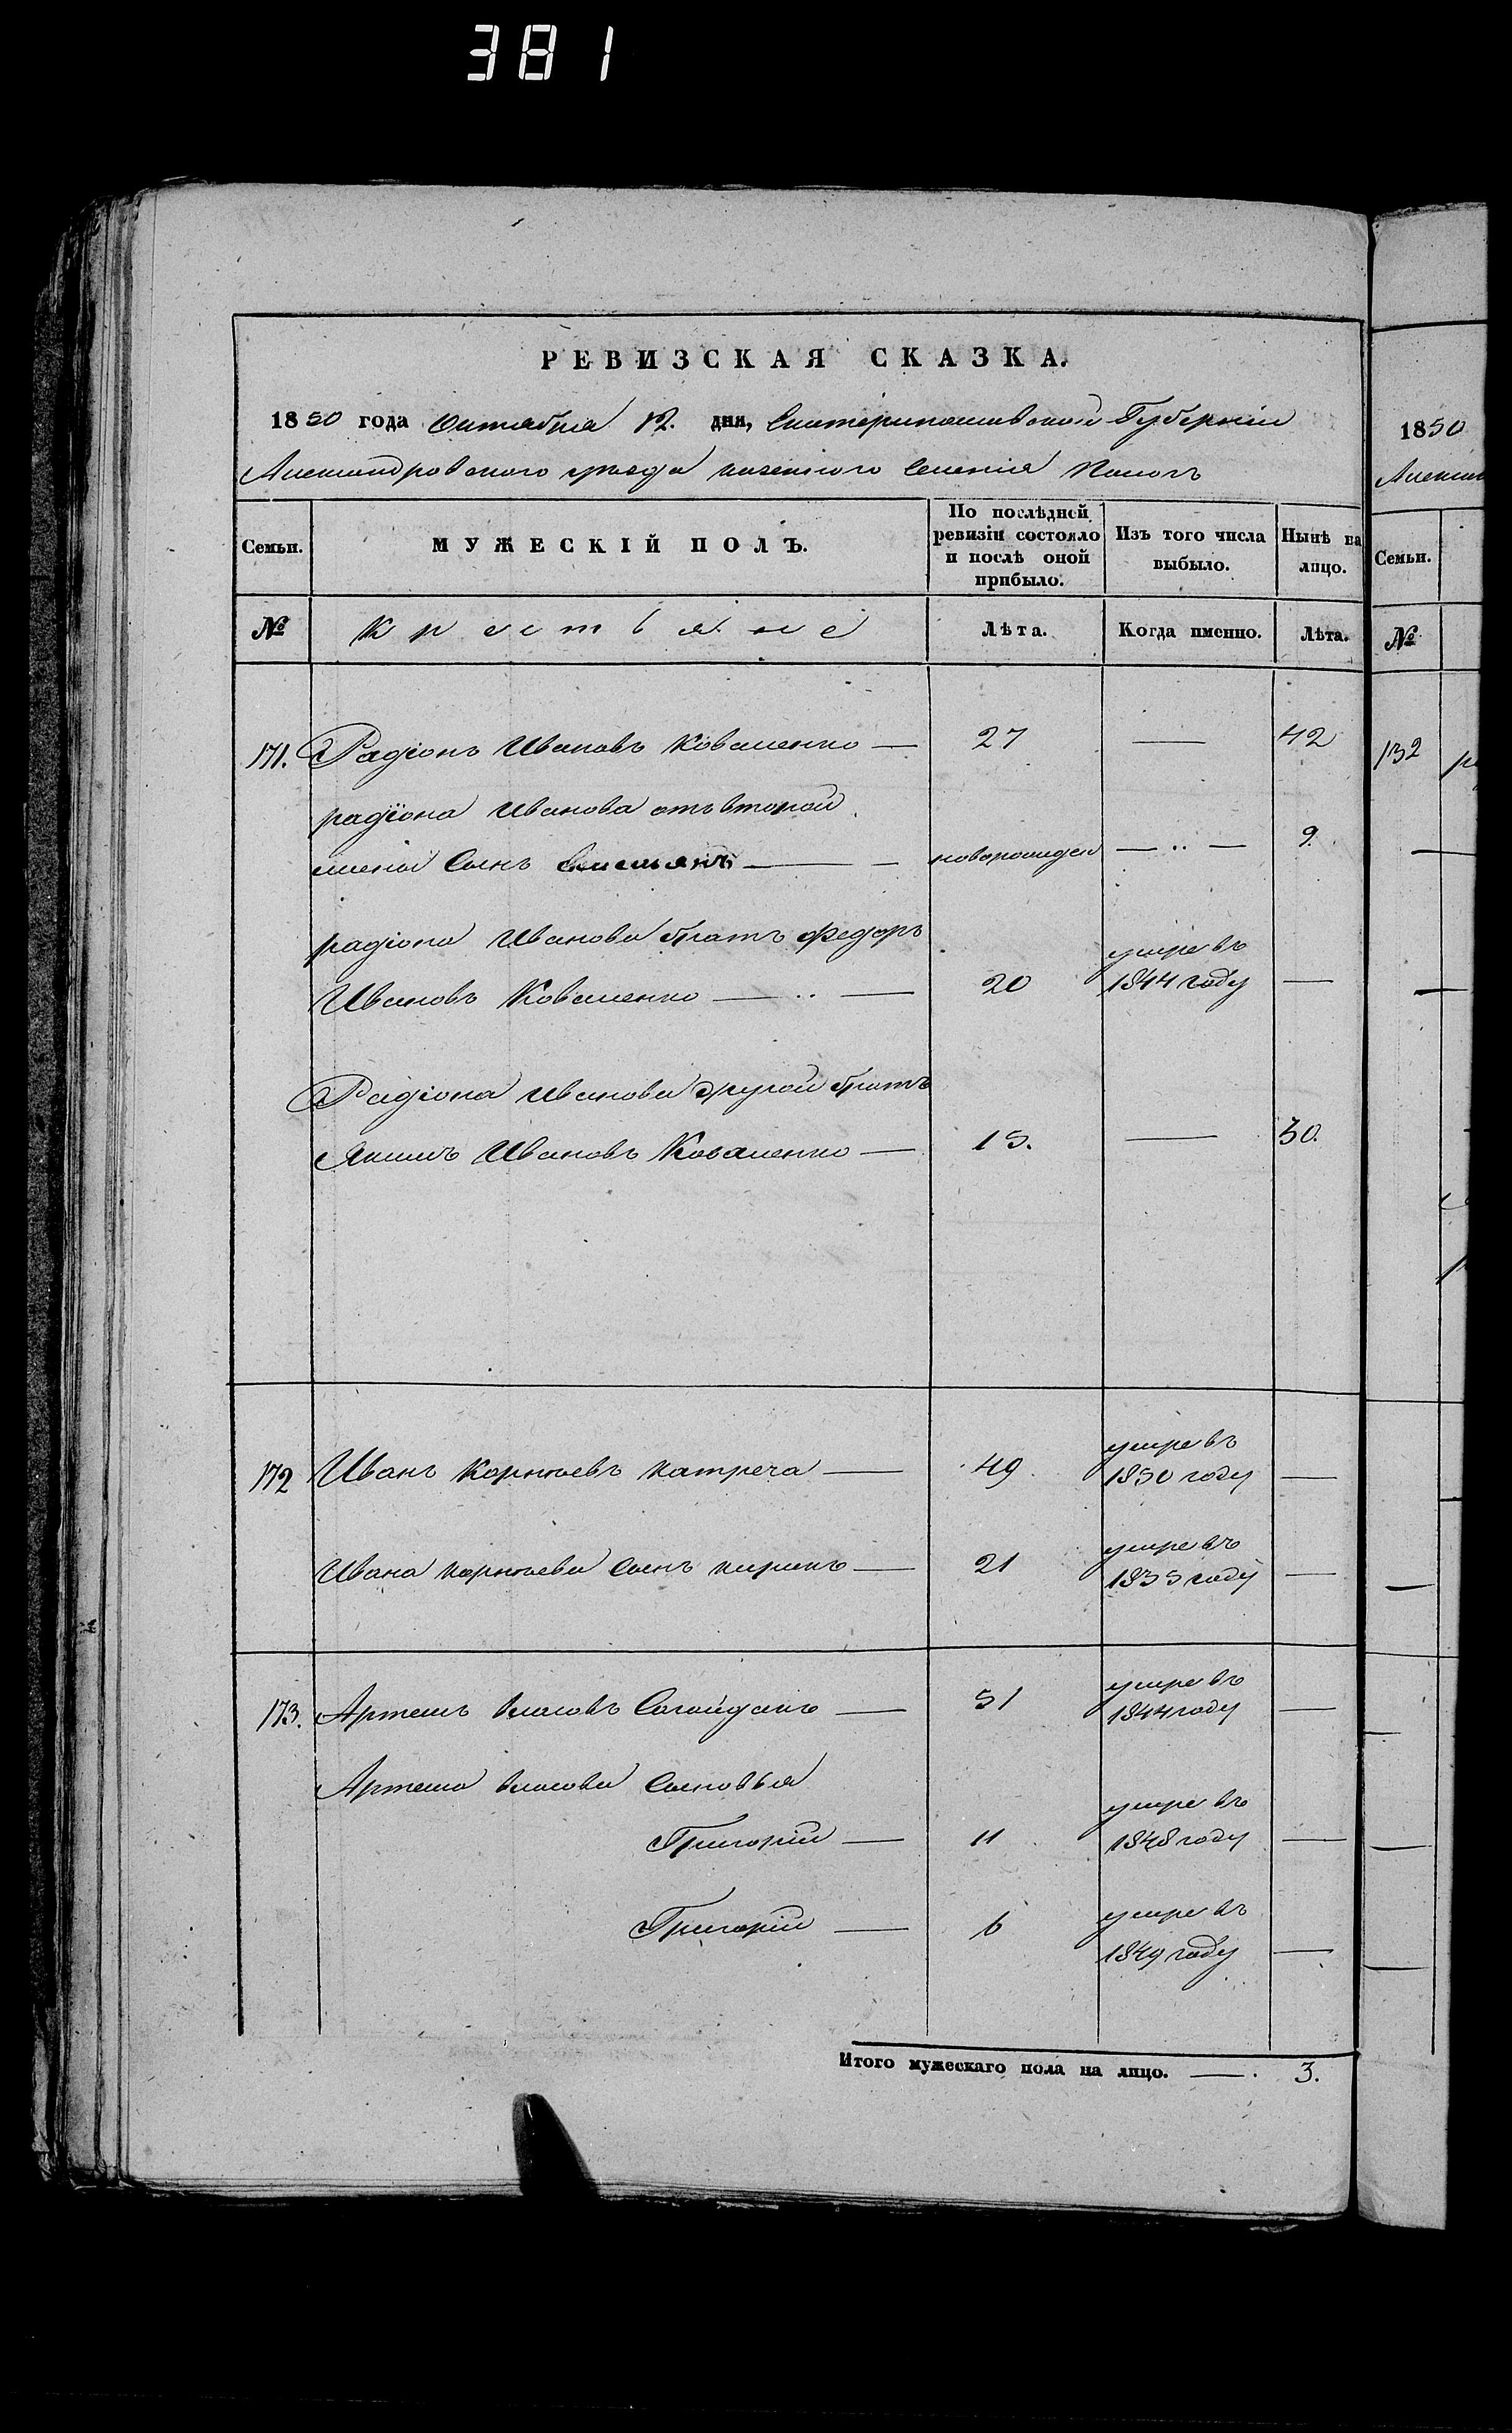 381
РЕВИЗСКАЯ СКАЗКА.
1850 года Октября 12. дня, Екатеринославской Губернiи
Александровского уезда казенного Селенія Пологъ
Семьи. МУЖЕСКІЙ ПОЛЪ. По послѣдней ревизіи состояло и послѣ оной прибыло. Изъ того числа выбыло. Нынѣ на лицо.
№ Крестьяне Лѣта. Когда именно. Лѣта.
171. Радіонъ Ивановъ Коваленко — 27 — 42
радіона Иванова отъ второй
жены Сынъ Емельянъ — новорожден — 9.
радіона Иванова братъ Федоръ
умре въ
Ивановъ Коваленко — 20 1844 году —
Радіона Иванова другой братъ
Якимъ Ивановъ Коваленко — 15. — 30.
умре въ
172 Иванъ Корнѣевъ — 49 1850 году —
умре въ
Ивана Корнѣева Сынъ — 21 1835 году —
умре въ
173. Артемъ Власовъ Согайдакъ — 51 1844 году —
Артема Власова Сыновья
умре въ
Григорій — 11 1848 году —
умре въ
Григорій — 6
1849 году —
Итого мужескаго пола на лицо. — 3.
1850
Семьи.
№
132